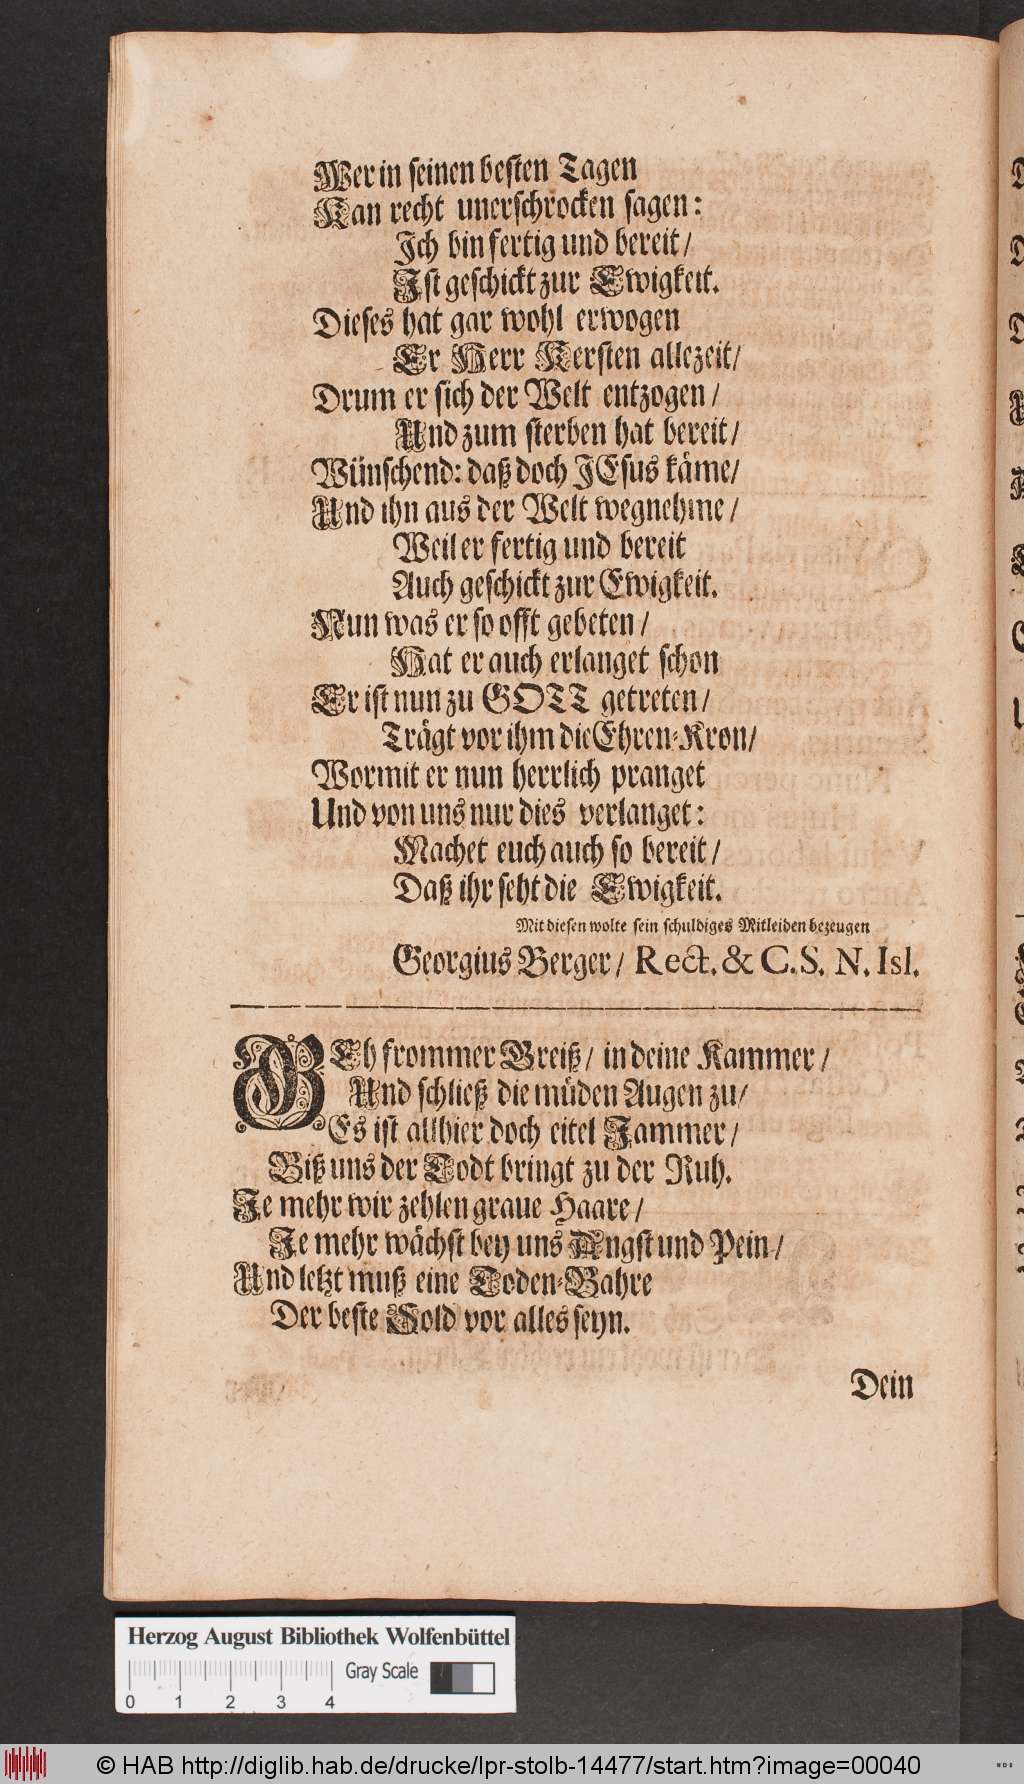 Wer in seinen besten Tagen
Kan recht unerschrocken sagen:
Ich bin fertig und bereit/
Ist geschickt zur Ewigkeit.
Dieses hat gar wohl erwogen
Er Herr Kersten allezeit/
Drum er sich der Welt entzogen/
Und zum sterben hat bereit/
Wünschend: daß doch JEsus käme/
Und ihn aus der Welt wegnehme/
Weil er fertig und bereit
Auch geschickt zur Ewigkeit.
Nun was er so offt gebeten/
Hat er auch erlanget schon
Er ist nun zu GOTT getreten/
Trägt vor ihm die Ehren-Kron/
Wormit er nun herrlich pranget
Und von uns nur dies verlanget:
Machet euch auch so bereit/
Daß ihr seht die Ewigkeit.
Mit diesen wolte sein schuldiges Mitleiden bezeugen
Georgius Berger/ Rect. & C. S. N. Isl.
GEh frommer Greiß/ in deine Kammer/
Und schließ die müden Augen zu/
Es ist allhier doch eitel Jammer/
Biß uns der Todt bringt zu der Ruh.
Je mehr wir zehlen graue Haare/
Je mehr wächst bey uns Angst und Pein/
Und letzt muß eine Toden-Bahre
Der beste Sold vor alles seyn.
Dein
Herzog August Bibliothek Wolfenbüttel
Gray Scale
0 1 2 3 4
© HAB http://diglib.hab.de/drucke/lpr-stolb-14477/start.htm?image=00040